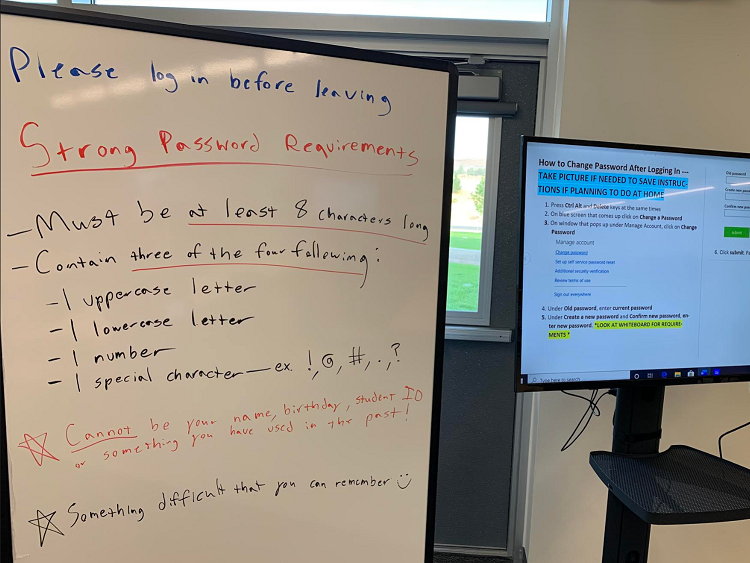 Please log in before leaving
Strong Password Requirements
- Must be at least 8 characters long
- Contain three of the four following:
- 1 uppercase letter
- 1 lowercase letter
- 1 number
- 1 special character — ex. !, @, #, ., ?
☆ Cannot be your name, birthday, student ID
or something you have used in the past!
☆ Something difficult that you can remember ☺
How to Change Password After Logging In ---
TAKE PICTURE IF NEEDED TO SAVE INSTRUC-
TIONS IF PLANNING TO DO AT HOME
1. Press Ctrl Alt and Delete keys at the same times
2. On blue screen that comes up click on Change a Password
3. On window that pops up under Manage Account, click on Change
Password
Manage account
Change password
Set up self service password reset
Additional security verification
Review terms of use
Sign out everywhere
4. Under Old password, enter current password
5. Under Create a new password and Confirm new password, en-
ter new password. *LOOK AT WHITEBOARD FOR REQUIRE-
MENTS *
Old password
Create new pass
Confirm new pas
submit
6. Click submit.
Type here to search